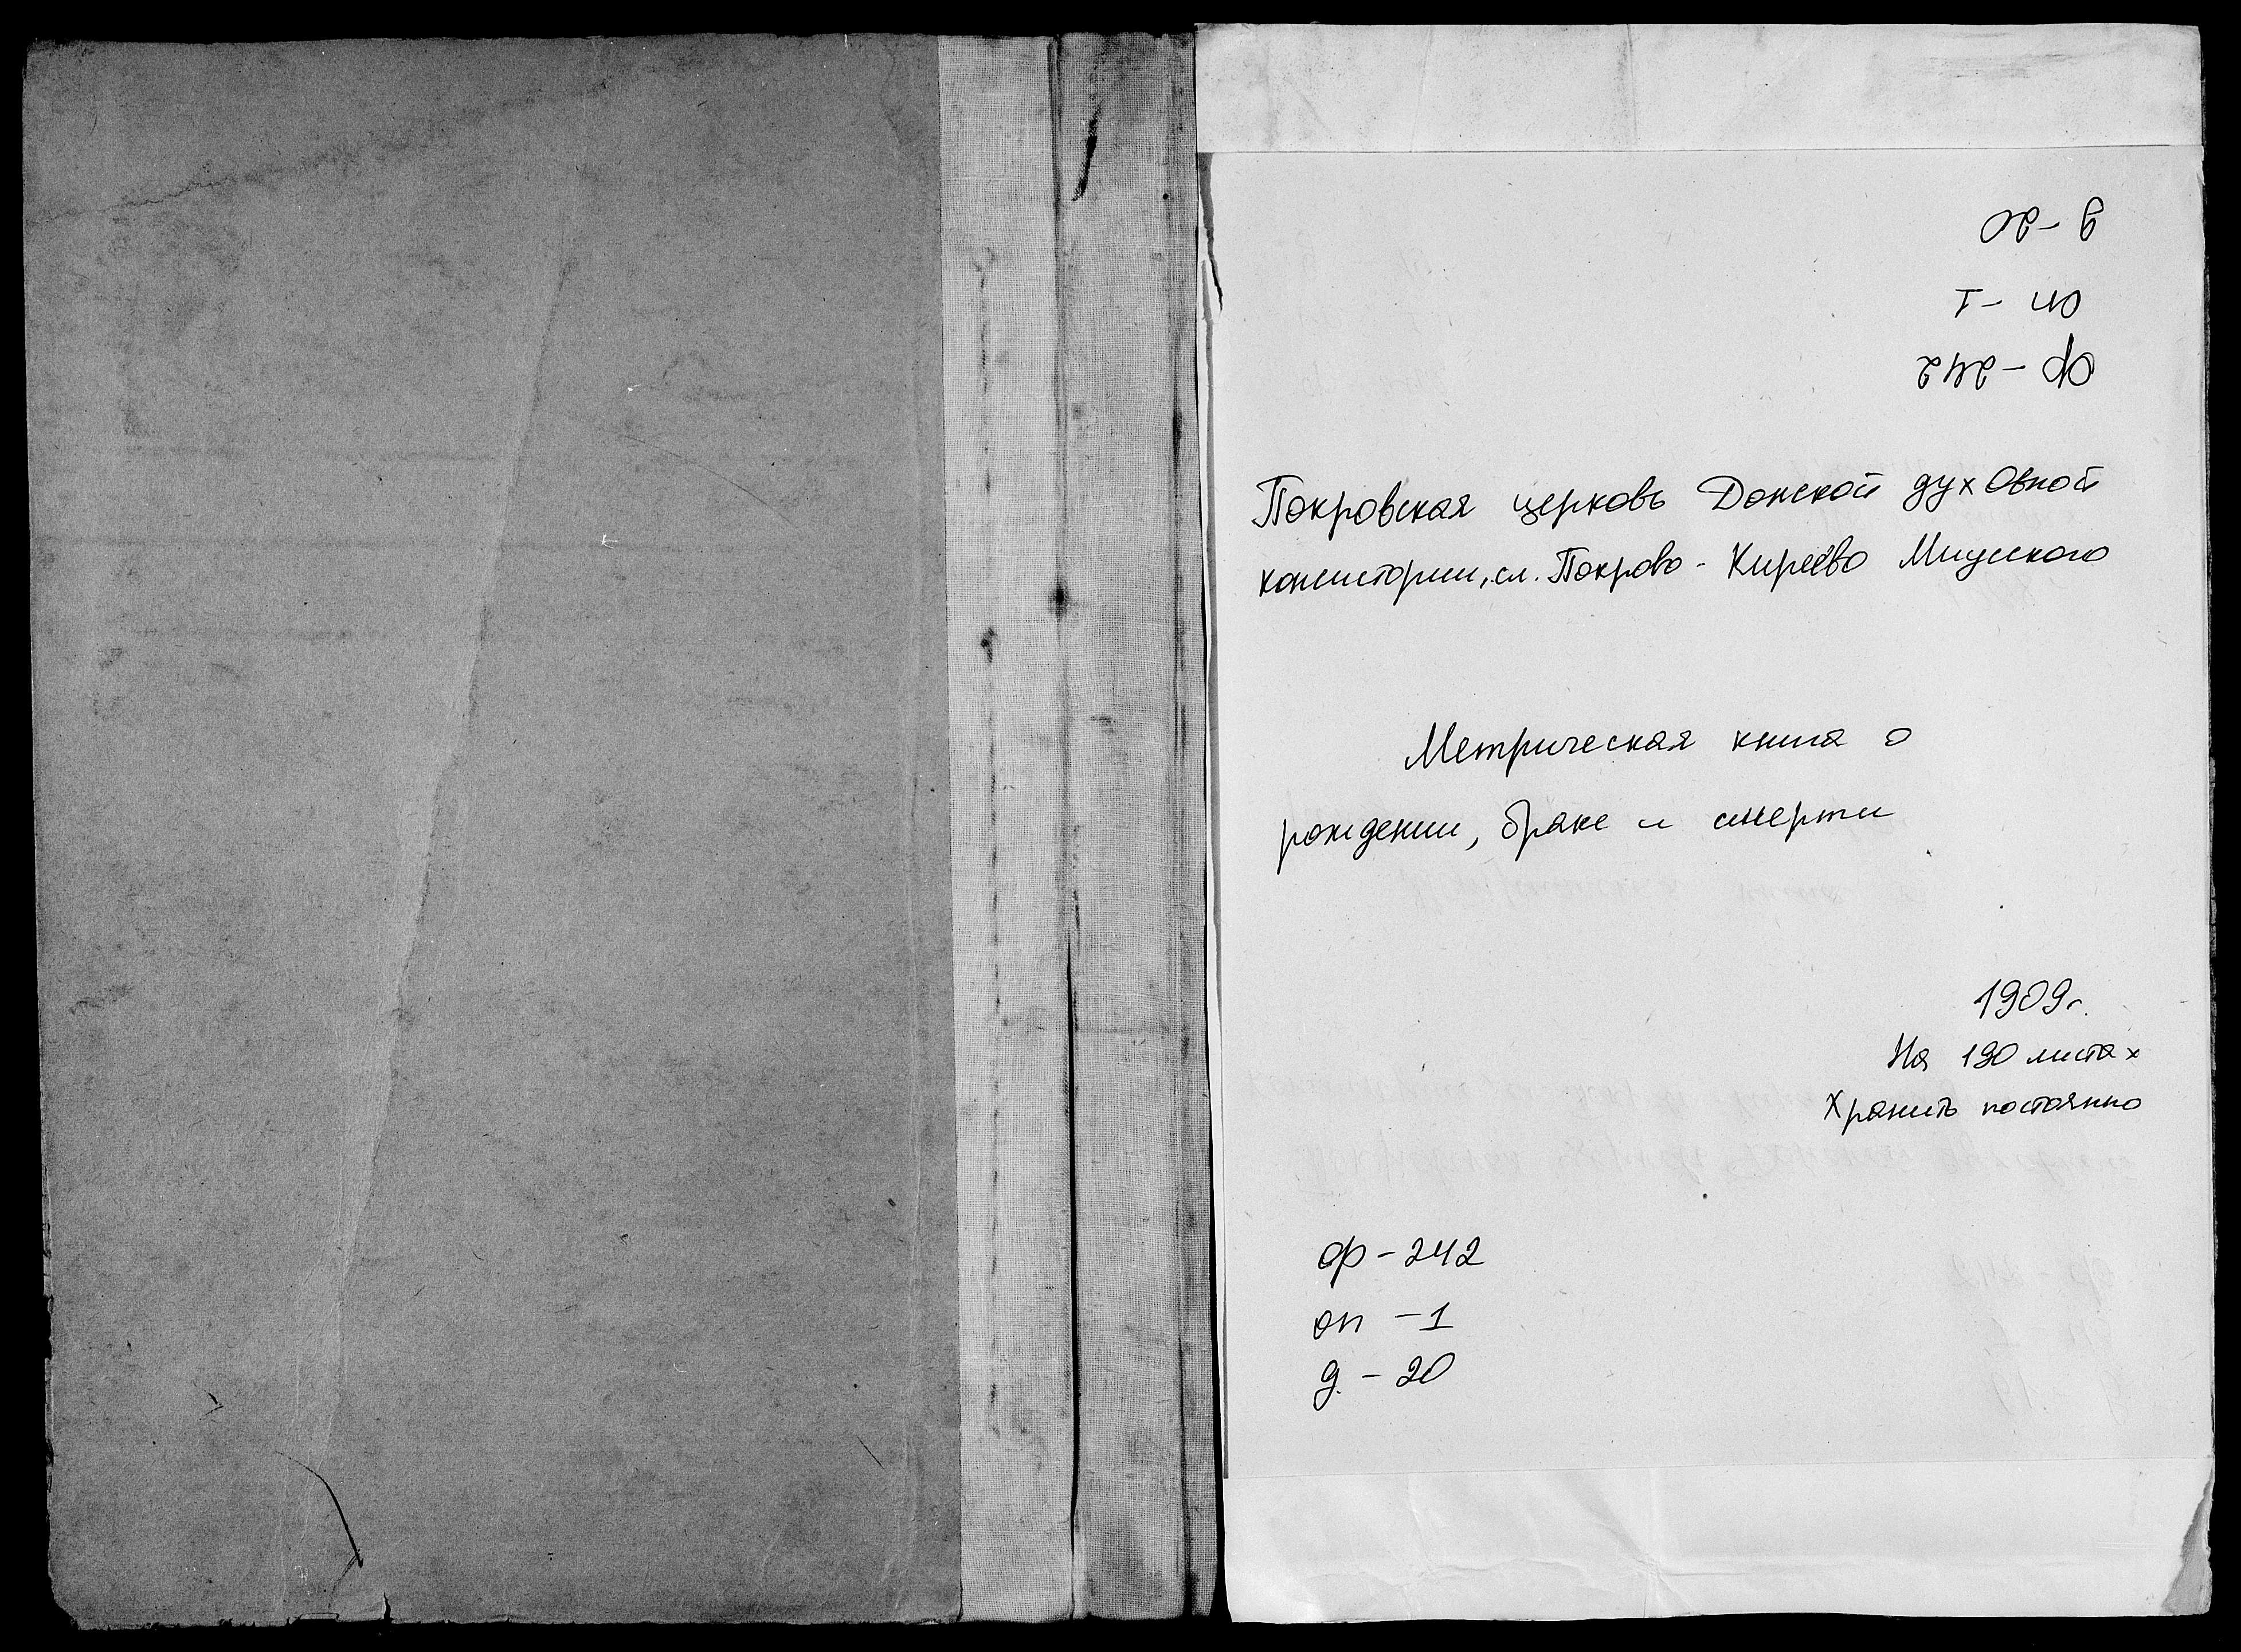 д - 20
оп - 1
ф - 242
Покровская церковь Донской духовной
консистории, сл. Покрово - Киреево Миусского
Метрическая книга о
рождении, браке и смерти
1909г.
На 190 листах
Хранить постоянно
ф - 242
оп - 1
д. - 20